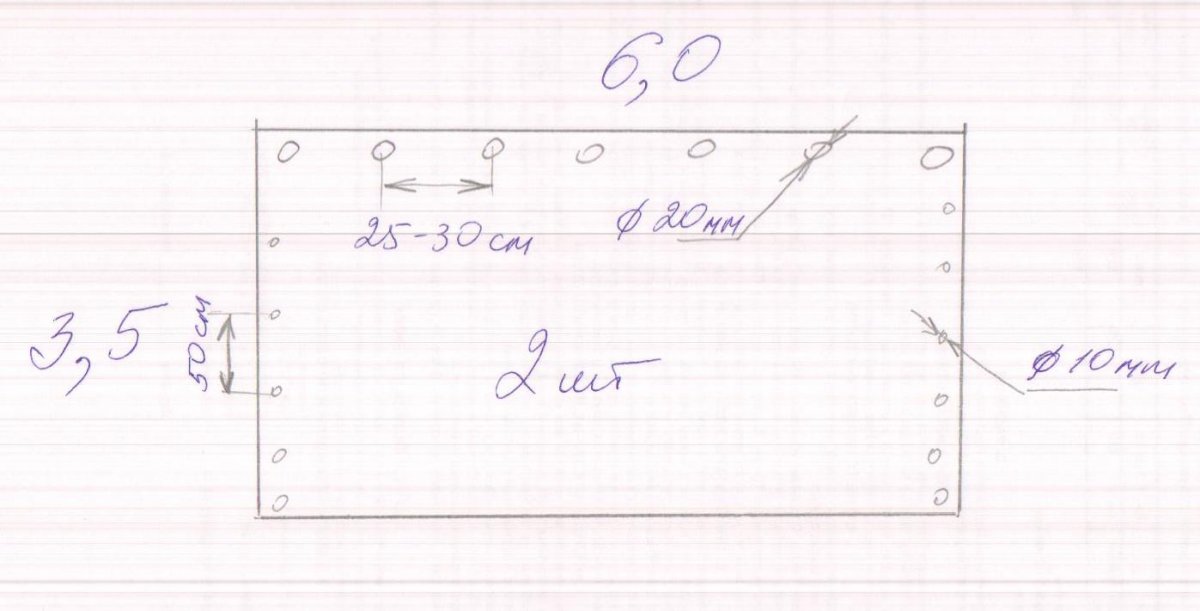 6,0
25-30 см
ϕ 20мм
3,5
50 см
2 шт
ϕ 10мм